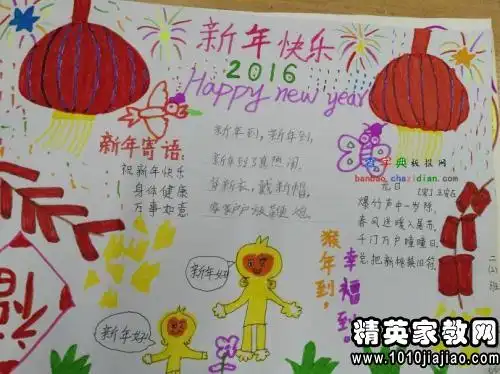 新年快乐
2016
Happy new year
新年寄语:
祝新年快乐
身体健康
万事如意
新年到,新年到,
新年到了真热闹。
穿新衣,戴新帽,
家家户户放鞭炮。
查字典板报网
banbao.chazidian.com
元日
爆竹声中一岁除,
春风送暖入屠苏。
千门万户曈曈日,
总把新桃换旧符。
猴年到,
幸福到。
新年好
新年好!
福
二(2)班
精英家教网
http://www.1010jiajiao.com/